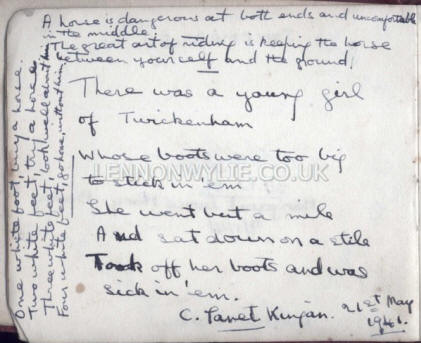 A horse is dangerous at both ends and uncomfortable
in the middle.
The great art of riding is keeping the horse
between yourself and the ground!
There was a young girl
of Twickenham
Whose boots were too big
to stick in 'em
She went but a mile
And sat down on a stile
Took off her boots and was
sick in 'em.
C. Janet
21st May
1941.
One white foot, buy a horse.
Two white feet, try a horse
Three white feet, look well about him
Four white feet, go home without him
LENNONWYLIE.CO.UK